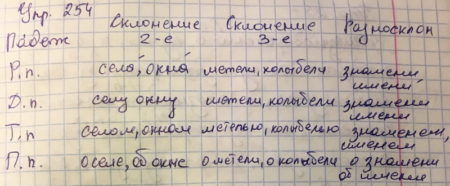 Упр. 254
Падеж Склонение 2-е Склонение 3-е Разносклон
Р.п. села, окна метели, колыбели знамени, имени
Д.п. селу окну метели, колыбели знамени имени
Т.п. селом, окном метелью, колыбелью знаменем, именем
П.п. о селе, об окне о метели, о колыбели о знамени об имени